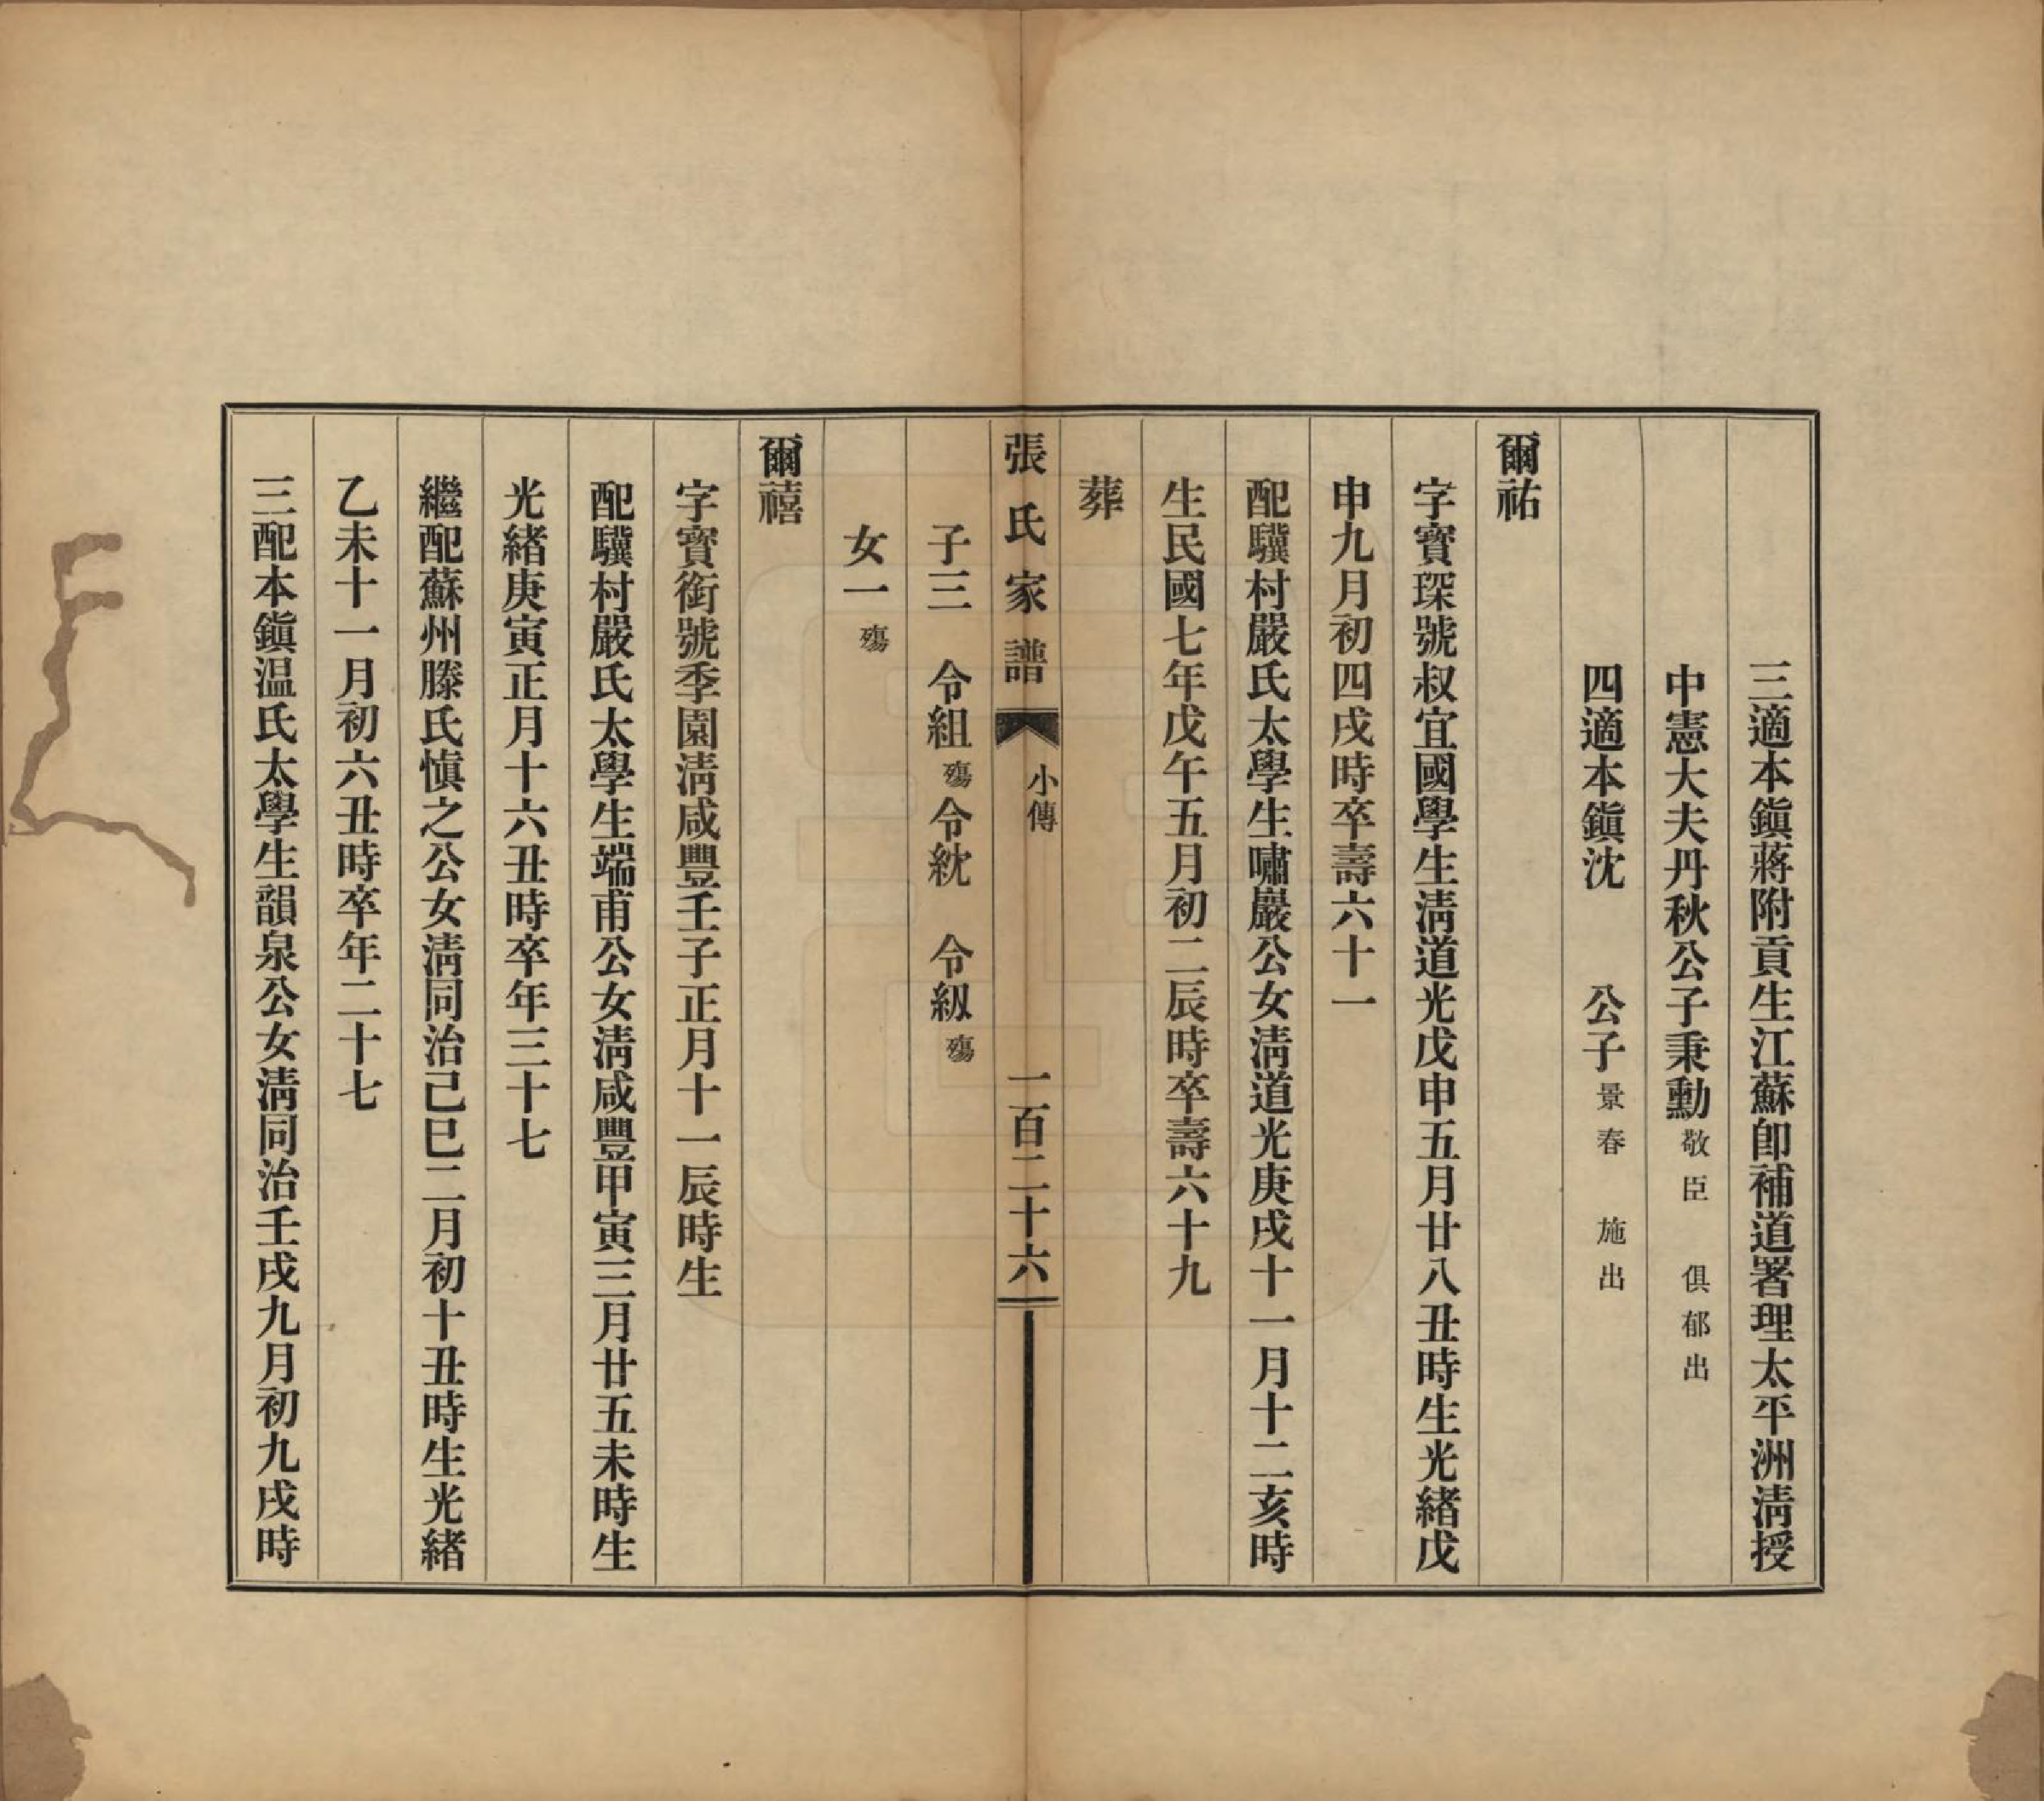 三適本鎭蔣附貢生江蘇卽補道署理太平洲淸授
中憲大夫丹秋公子秉勳敬臣　俱郁出
四適本鎭沈　　公子景春　施出
爾祐
字寶琛號叔宜國學生淸道光戊申五月廿八丑時生光緖戊
申九月初四戌時卒壽六十一
配驥村嚴氏太學生嘯巖公女淸道光庚戌十一月十二亥時
生民國七年戊午五月初二辰時卒壽六十九
葬
張氏家譜　小傳　一百二十六
子三　令組殤令紞　令級殤
女一殤
爾禧
字寶銜號季園淸咸豐壬子正月十一辰時生
配驥村嚴氏太學生端甫公女淸咸豐甲寅三月廿五未時生
光緖庚寅正月十六丑時卒年三十七
繼配蘇州滕氏愼之公女淸同治己巳二月初十丑時生光緖
乙未十一月初六丑時卒年二十七
三配本鎭温氏太學生韻泉公女淸同治壬戌九月初九戌時